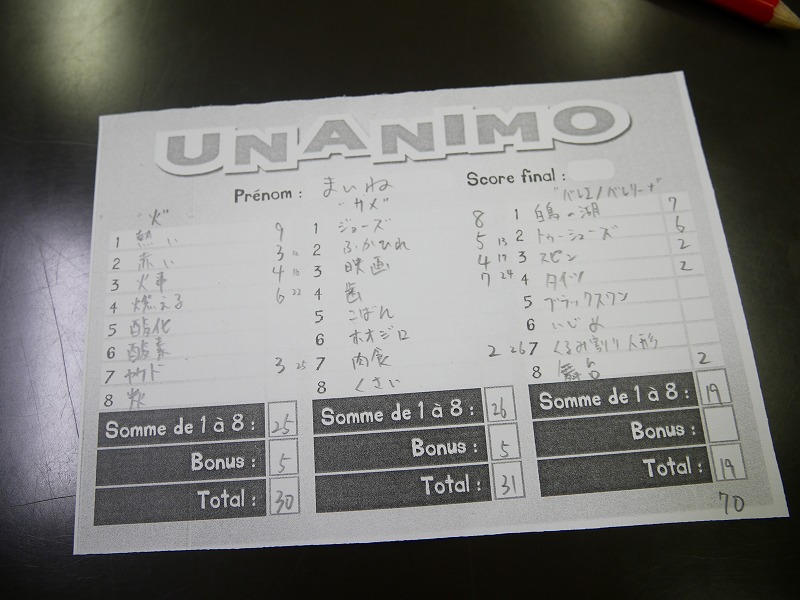 UNANIMO
Prénom : まいね
Score final :
"火"
1 熱い 9
2 赤い 3 12
3 火事 4 16
4 燃える 6 22
5 酸化
6 酸素
7 ヤケド 3 25
8 炎
Somme de 1 à 8 : 25
Bonus : 5
Total : 30
"サメ"
1 ジョーズ 8
2 ふかひれ 5 13
3 映画 4 17
4 歯 7 24
5 こばん
6 ホオジロ
7 肉食 2 26
8 くさい
Somme de 1 à 8 : 26
Bonus : 5
Total : 31
"バレエ/バレリーナ"
1 白鳥の湖 7
2 トゥーシューズ 6
3 スピン 2
4 タイツ 2
5 ブラックスワン
6 いじめ
7 くるみ割り人形
8 舞台 2
Somme de 1 à 8 : 19
Bonus :
Total : 19
70